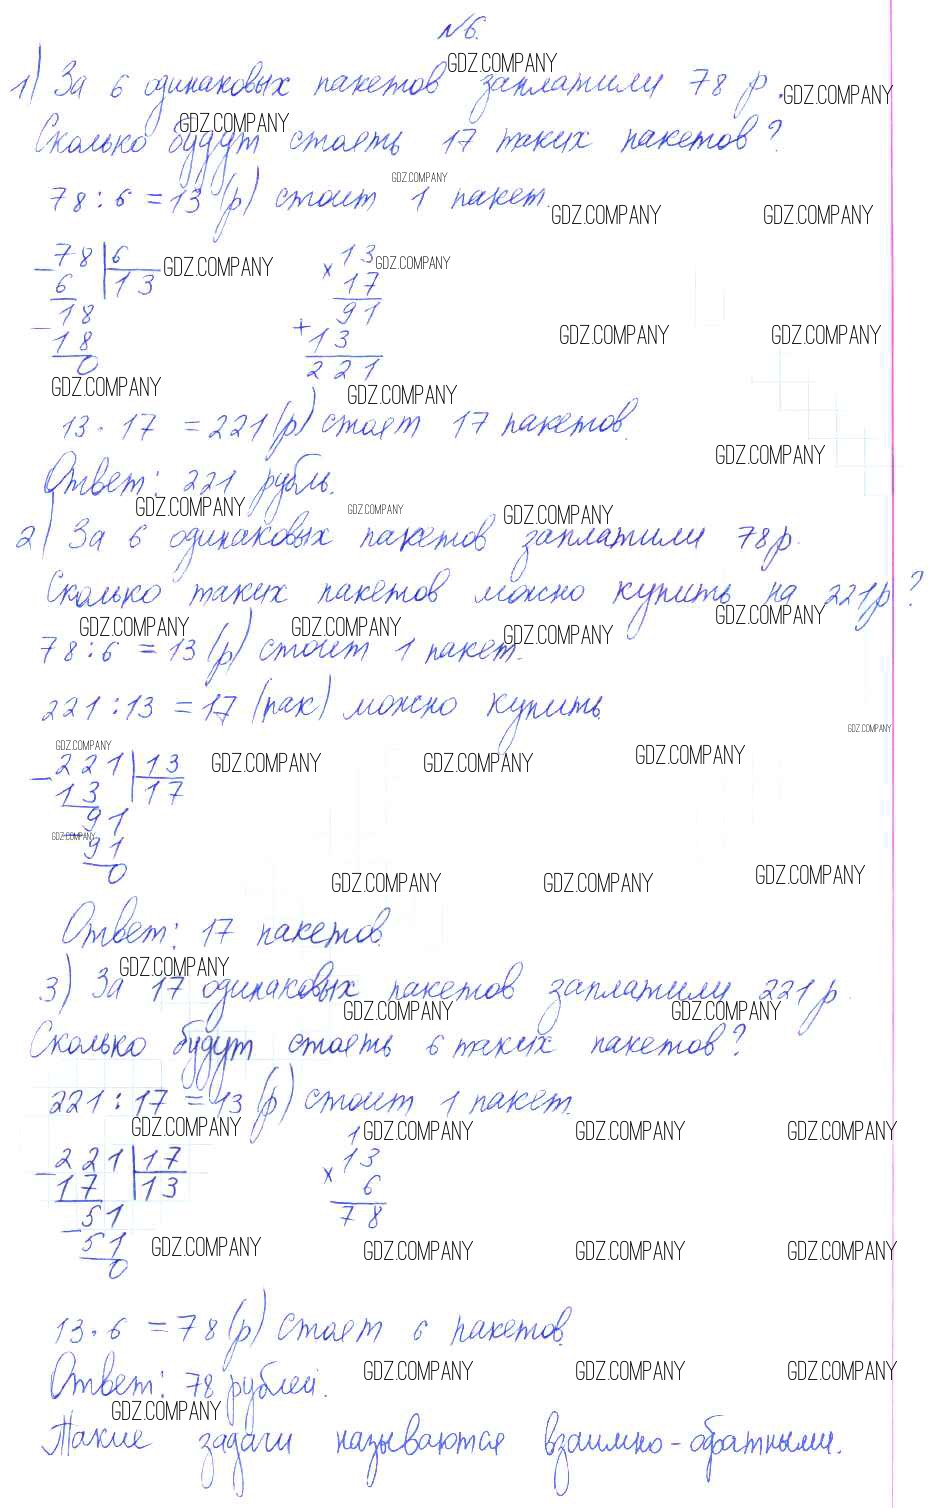 №6.
1) За 6 одинаковых пакетов заплатили 78 р.
Сколько будут стоять 17 таких пакетов?
78 : 6 = 13 (р) стоит 1 пакет.
- 78 | 6
6 | 13
- 18
18
0
× 13
17
91
+ 13
221
13 · 17 = 221 (р) стоят 17 пакетов.
Ответ: 221 рубль.
2) За 6 одинаковых пакетов заплатили 78 р.
Сколько таких пакетов можно купить на 221 р?
78 : 6 = 13 (р) стоит 1 пакет.
221 : 13 = 17 (пак) можно купить.
- 221 | 13
13 | 17
- 91
91
0
Ответ: 17 пакетов.
3) За 17 одинаковых пакетов заплатили 221 р.
Сколько будут стоять 6 таких пакетов?
221 : 17 = 13 (р) стоит 1 пакет.
- 221 | 17
17 | 13
- 51
51
0
1
× 13
6
78
13 · 6 = 78 (р) стоят 6 пакетов.
Ответ: 78 рублей.
Такие задачи называются взаимно-обратными.
GDZ.COMPANY